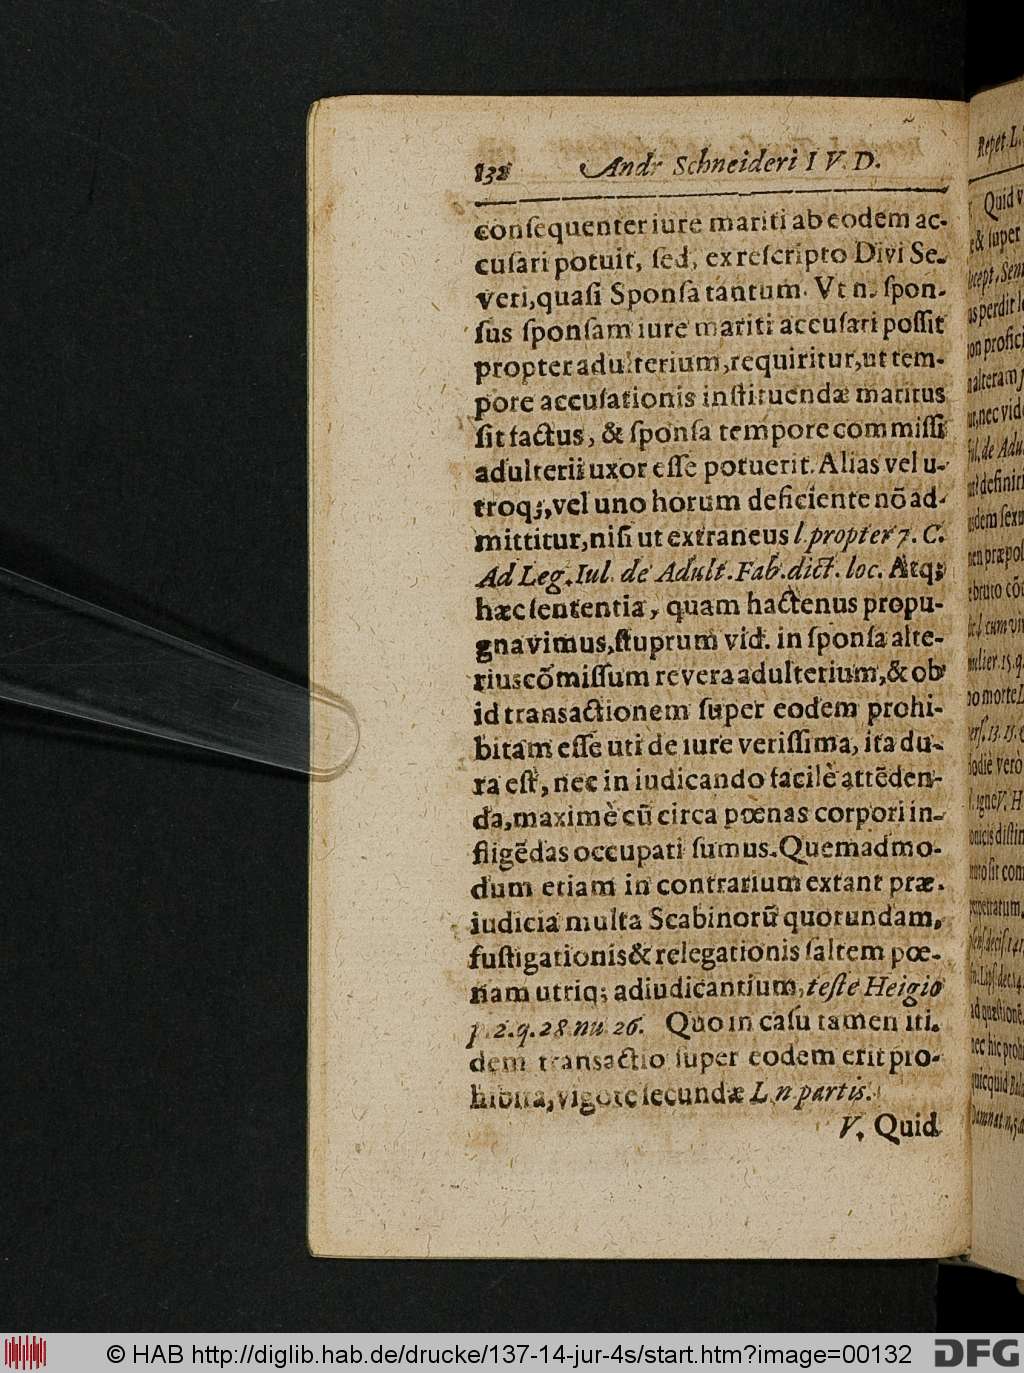 132 Andr Schneideri I V. D.
conſequenter iure mariti ab eodem ac-
cuſari potuit, ſed, ex reſcripto Divi Se-
veri, quaſi Sponſa tantum. Vt n. ſpon-
ſus ſponſam iure mariti accuſari poſſit
propter adulterium, requiritur, ut tem-
pore accuſationis inſtituendæ maritus
ſit factus, & ſponſa tempore commiſſi
adulterii uxor eſſe potuerit. Alias vel u-
troq;, vel uno horum deficiente nõ ad-
mittitur, niſi ut extraneus l. propter 7. C.
Ad Leg. Iul. de Adult. Fab. dict. loc. Atq;
hæc ſententia, quam hactenus propu-
gnavimus, ſtuprum vid. in ſponſa alte-
rius cõmiſſum revera adulterium, & ob
id transactionem ſuper eodem prohi-
bitam eſſe uti de iure veriſſima, ita du-
ra eſt, nec in iudicando facilè attẽden-
da, maximè cũ circa pœnas corpori in-
fligẽdas occupati ſumus. Quemadmo-
dum etiam in contrarium extant præ-
iudicia multa Scabinorũ quorundam,
fuſtigationis & relegationis ſaltem pœ-
nam utriq; adiudicantium, teſte Heigio
p. 2. q. 28 nu 26. Quo in caſu tamen iti-
dem transactio ſuper eodem erit pro-
hibita, vigore ſecundæ L. n partis.
V. Quid
Repet. L.
Quid v
& ſuper
as perdit
nec vid
de Adu
definiri
dem ſexu
cum vi
mulier. 15. q.
no morte
odiè verò
ſit com
perpetratum,
ad quæſtionẽ
nec hic prohi
© HAB http://diglib.hab.de/drucke/137-14-jur-4s/start.htm?image=00132
DFG